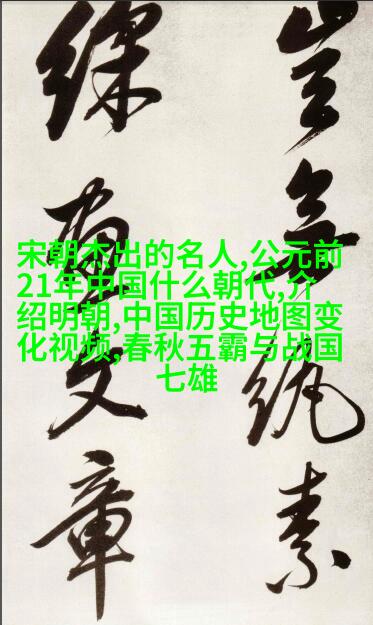 豈無紈素
綵畫文章
宋朝杰出的名人,公元前
21年中国什么朝代,介
绍明朝,中国历史地图变
化视频,春秋五霸与战国
七雄